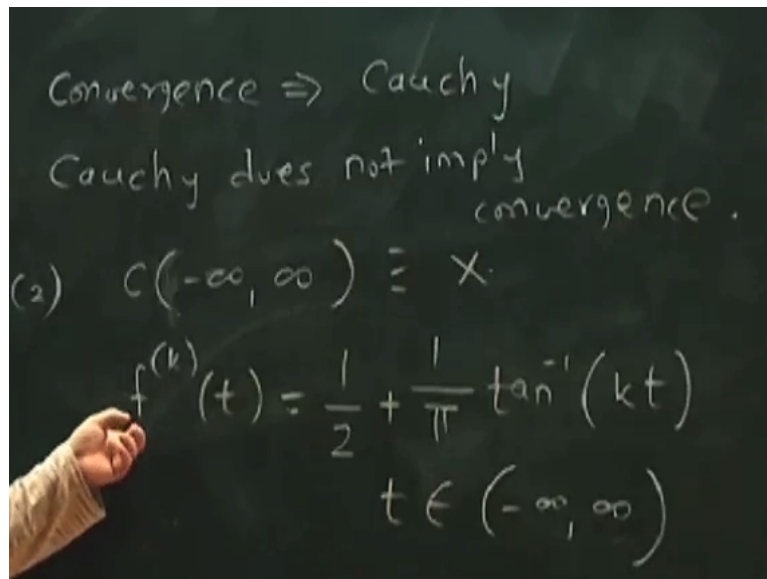 Convergence ⇒ Cauchy
Cauchy dues not imply
convergence.
(2) C(-∞, ∞) ≡ X.
f^(k)(t) = 1/2 + 1/π tan^-1 (kt)
t ∈ (-∞, ∞)